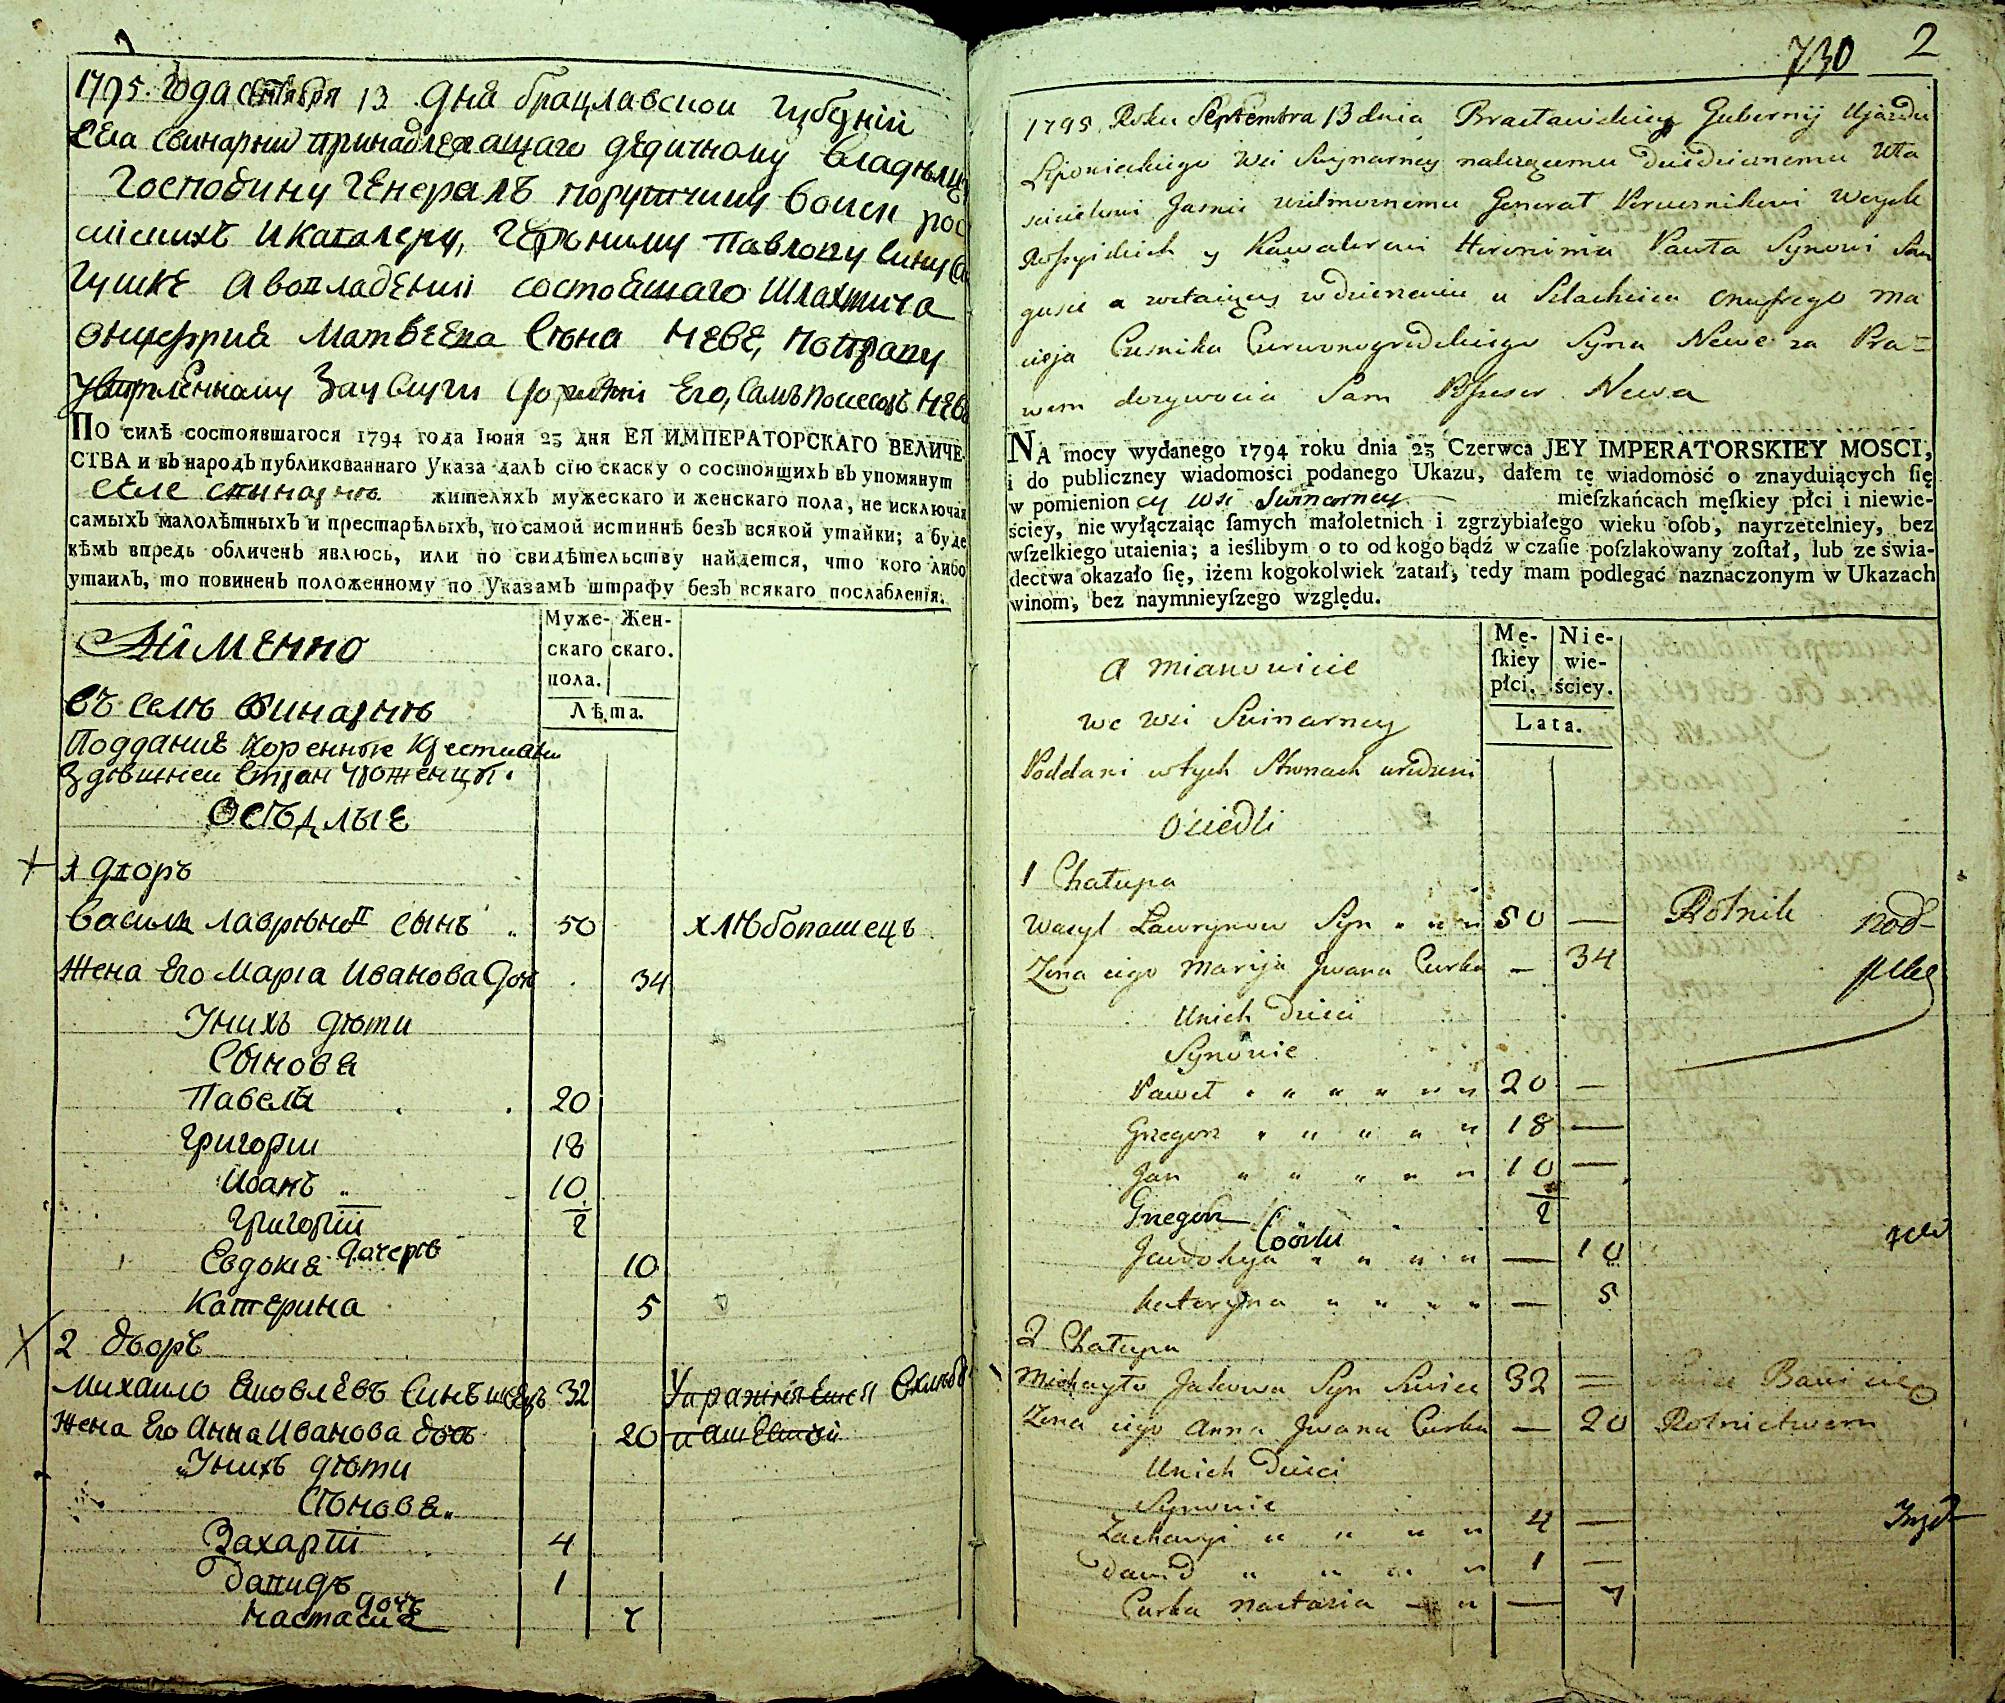 1795. Года Сентября 13 дня Брацлавской Губернии
Села Свинарни принадлежащаго дѣдичному владѣльцу
Господину Генералъ порутчику воиск рос
сииских и Кавалеру, павлову сину Са
гушке а во владении состоящаго Шляхтича
онуфрия Матвеева Сына Неве, по праву
заслуги его, Самъ посесоръ Неве
ПО силѣ состоявшагося 1794 года Іюня 23 дня ЕЯ ИМПЕРАТОРСКАГО ВЕЛИЧЕ-
СТВА и въ народъ публикованнаго Указа далъ сію скаску о состоящихъ въ упомянут
селе свинарнѣ жителяхъ мужескаго и женскаго пола, не исключая
самыхъ малолѣтныхъ и престарѣлыхъ, по самой истиннѣ безъ всякой утайки; а буде
кѣмъ впредь обличенъ явлюсь, или по свидѣтельству найдется, что кого либо
утаилъ, то повиненъ положенному по Указамъ штрафу безъ всякаго послабленія.
Муже- Жен-
скаго скаго.
пола.
Лѣта.
Аименно
Въ селѣ Свинарнѣ
Поддание коренные крестиани
здѣшнеи стран уроженцы.
Осѣдлые
1 дворъ
Василь лаврѣновъ сынъ 50 хлѣбопашецъ
Жена Его Марiа Иванова доч 34
У нихъ дѣти
Сынова
Павелъ 20
Григории 18
Иванъ 10
Григорiи 2
Евдокiя дочерѣ 10
Катерина 5
2 дворъ
Михаило Яковлевъ Синъ швецъ 32 Упражняеться
Жена Его Анна Иванова доч 20
У нихъ дѣти
Сынова
Захарiи 4
Давидъ 1
дочъ
Настасия 7
730 2
1795 Roku Septembra 13 dnia Bracławskiey Gubernij Ujazdu
Lipowieckiego Wsi Swynarney należącemu Dziedzicznemu Wła
scicielowi Jasnie wielmoznemu Generał Porucznikowi Woysk
Rossyiskich y Kawalerowi Hieronima Pawła Synowi San
gusce a zostaiącey w dzierzeniu u Szlachcica Onufrego Ma
cieja Czesnika Czerwonogrodzkiego Syna Newe za Pra=
wem dozywocia Sam Possesor Newa
NA mocy wydanego 1794 roku dnia 23 Czerwca JEY IMPERATORSKIEY MOSCI,
i do publiczney wiadomości podanego Ukazu, dałem tę wiadomość o znayduiących się
w pomienion ey Wsi Swinarney mieſzkańcach męſkiey płci i niewie-
ściey, nie wyłączaiąc ſamych małoletnich i zgrzybiałego wieku oſob, nayrzetelniey, bez
wſzelkiego utaienia; a ieślibym o to od kogo bądź w czaſie poſzlakowany zoſtał, lub ze świa-
dectwa okazało ſię, iżem kogokolwiek zataił, tedy mam podlegać naznaczonym w Ukazach
winom, bez naymnieyſzego względu.
Mę- Nie-
ſkiey wie-
płci. ściey.
Lata.
a mianowicie
we wsi Swinarney
Poddani w tych Stronach urodzeni
Osiedli
1 Chałupa
Wasyl Lawrynow Syn 50 — Rolnik
Zona iego Maryja Jwana Curka — 34
U nich Dzieci
Synowie
Paweł 20 —
Gregorz 18 —
Jan 10 —
Gregorz 2
Jewdokija — 10
Kateryna — 5
2 Chałupa
Michayło Jakowa Syn Swiec 32 = Bawi się
Zona iego Anna Jwana Curka — 20 Rolnictwem
U nich Dzieci
Synowie
Zacharyi 4 —
Dawid 1 —
Curka Nastazia — 7